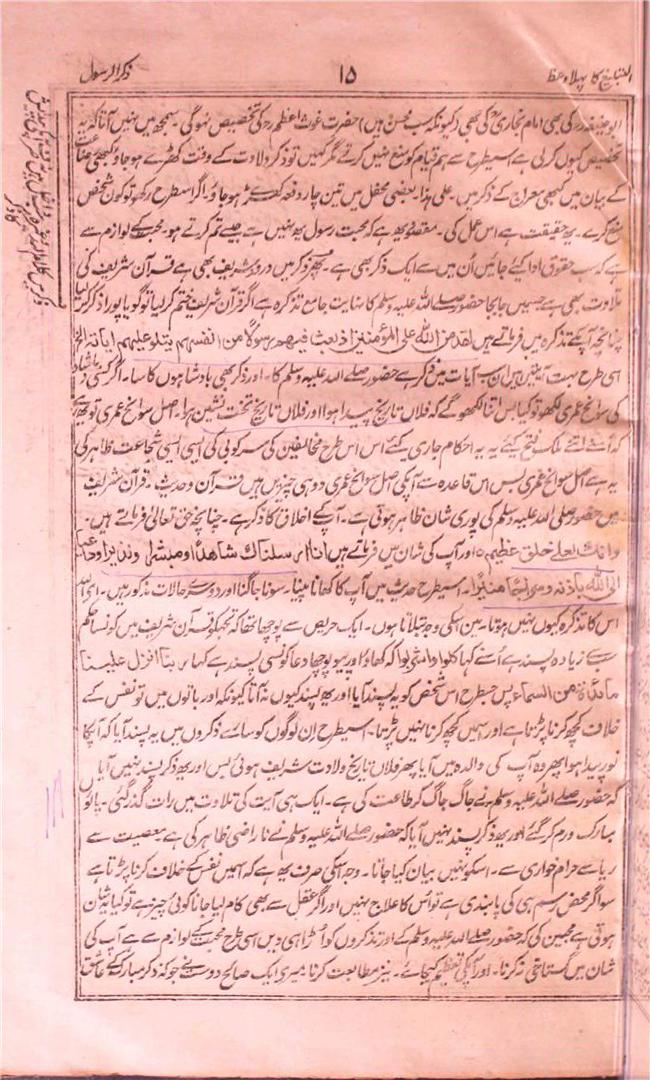 التبلیغ کا پہلا وعظ ۱۵ ذکر الرسول
ابو حنیفہ کی بھی امام بخاری کی بھی (کیونکہ سب محسن ہیں) حضرت غوث اعظم کی تخصیص نہ ہوگی۔ سمجھ میں نہیں آتا کہ یہ
تخصیص کیوں کر لی ہے اسیطرح سے ہم قیام کو منع نہیں کرتے مگر کہیں تو ذکر ولادت کے وقت کھڑے ہو جاؤ کبھی
کے بیان میں کبھی معراج کے ذکر میں۔ علی ہذا۔ بعضی محفل میں تین چار دفعہ کھڑے ہو جاؤ۔ اگر اسطرح رکھو تو کون شخص
منع کرے۔ یہ حقیقت ہے اس عمل کی۔ مقصود یہ ہے کہ محبت رسول یہ نہیں ہے جیسے تم کرتے ہو۔ محبت کے لوازم سے
ہے کہ سب حقوق ادا کیئے جائیں اُن میں سے ایک ذکر بھی ہے۔ پھر ذکر میں درود شریف بھی ہے قرآن شریف کی
تلاوت بھی ہے جسمیں جابجا حضور صلے اللہ علیہ وسلم کا نہایت جامع تذکرہ ہے اگر قرآن شریف ختم کر لیا تو گویا پورا ذکر کر لیا
چنانچہ آپکے تذکرہ میں فرماتے ہیں لقد من اللہ علی المؤمنین اذ بعث فیھم رسولا من انفسھم یتلو علیھم ایاتہ الخ
اسی طرح بہت آیتیں ہیں ان سب آیات میں ذکر ہے حضور صلے اللہ علیہ وسلم کا۔ اور ذکر بھی بادشاہوں کا سا۔ اگر کسی
کی سوانح عمری لکھو تو کیا بس اتنا لکھو گے کہ فلاں تاریخ پیدا ہوا اور فلاں تاریخ تخت نشین ہوا۔ اصل سوانح عمری تو یہ ہے
کہ اُسنے اتنے ملک فتح کیئے یہ یہ احکام جاری کیئے اس اس طرح مخالفین کی سرکوبی کی ایسی ایسی شجاعت ظاہر کی
یہ ہے اصل سوانح عمری بس اس قاعدہ سے آپکی اصل سوانح عمری دو ہی چیزیں ہیں قرآن و حدیث۔ قرآن شریف
میں حضور صلی اللہ علیہ وسلم کی پوری شان ظاہر ہوتی ہے۔ آپ کے اخلاق کا ذکر ہے۔ چنانچہ حق تعالی فرماتے ہیں۔
وانک لعلی خلق عظیم ہ اور آپ کی شان میں فرماتے ہیں انا ارسلناک شاھدا و مبشرا و نذیرا و داعیا
الی اللہ باذنہ و سراجا منیرا۔ اسیطرح حدیث میں آپ کا کھانا پینا۔ سونا جاگنا اور دوسرے حالات مذکور ہیں۔
اس کا تذکرہ کیوں نہیں ہوتا۔ میں اسکی وجہ بتلاتا ہوں۔ ایک حریص سے پوچھا تھا کہ تجھکو قرآن شریف میں کونسا حکم
سے زیادہ پسند ہے اُسنے کہا کلوا واشربوا کہ کھاؤ اور پیو پوچھا دعا کونسی پسند ہے کہا ربنا انزل علینا
مائدۃ من السماء پس جسطرح اس شخص کو یہ پسند آیا اور یہ پسند کیوں نہ آتا کیونکہ اور باتوں میں تو نفس کے
خلاف کچھ کرنا پڑتا ہے اور اسمیں کچھ کرنا نہیں پڑتا۔ اسیطرح ان لوگوں کو سارے ذکروں میں یہ پسند آیا کہ آپکا
نور پیدا ہوا پھر وہ آپ کی والدہ میں آیا پھر فلاں تاریخ ولادت شریف ہوئی بس اور یہ ذکر پسند نہیں آیا
کہ حضور صلے اللہ علیہ وسلم نے جاگ جاگ کر طاعت کی ہے۔ ایک ہی آیت کی تلاوت میں رات گذر گئی۔ پانو
مبارک ورم کر گئے اور یہ ذکر پسند نہیں آیا کہ حضور صلے اللہ علیہ وسلم نے ناراضی ظاہر کی ہے۔ معصیت سے
ربا سے حرام خواری سے۔ اسکو نہیں بیان کیا جاتا۔ وجہ اسکی صرف یہ ہے کہ اسمیں نفس کے خلاف کرنا پڑتا ہے
سو اگر محض رسم ہی کی پابندی ہے تو اُس کا علاج نہیں اور اگر عقل سے بھی کام لیا جانا کوئی چیز ہے تو کیا یہ شان
ہوتی ہے محبین کی کہ حضور صلے اللہ علیہ وسلم کے اور تذکروں کو اُڑا ہی دیں اسی طرح محبت کے لوازم سے ہے آپ کی
شان میں گستاخی نہ کرنا۔ اور آپکی تعظیم کیجائے۔ نیز مطابعت کرنا۔ میری ایک صالح دوست نے جو کہ ذکر مبارک کے عاشق